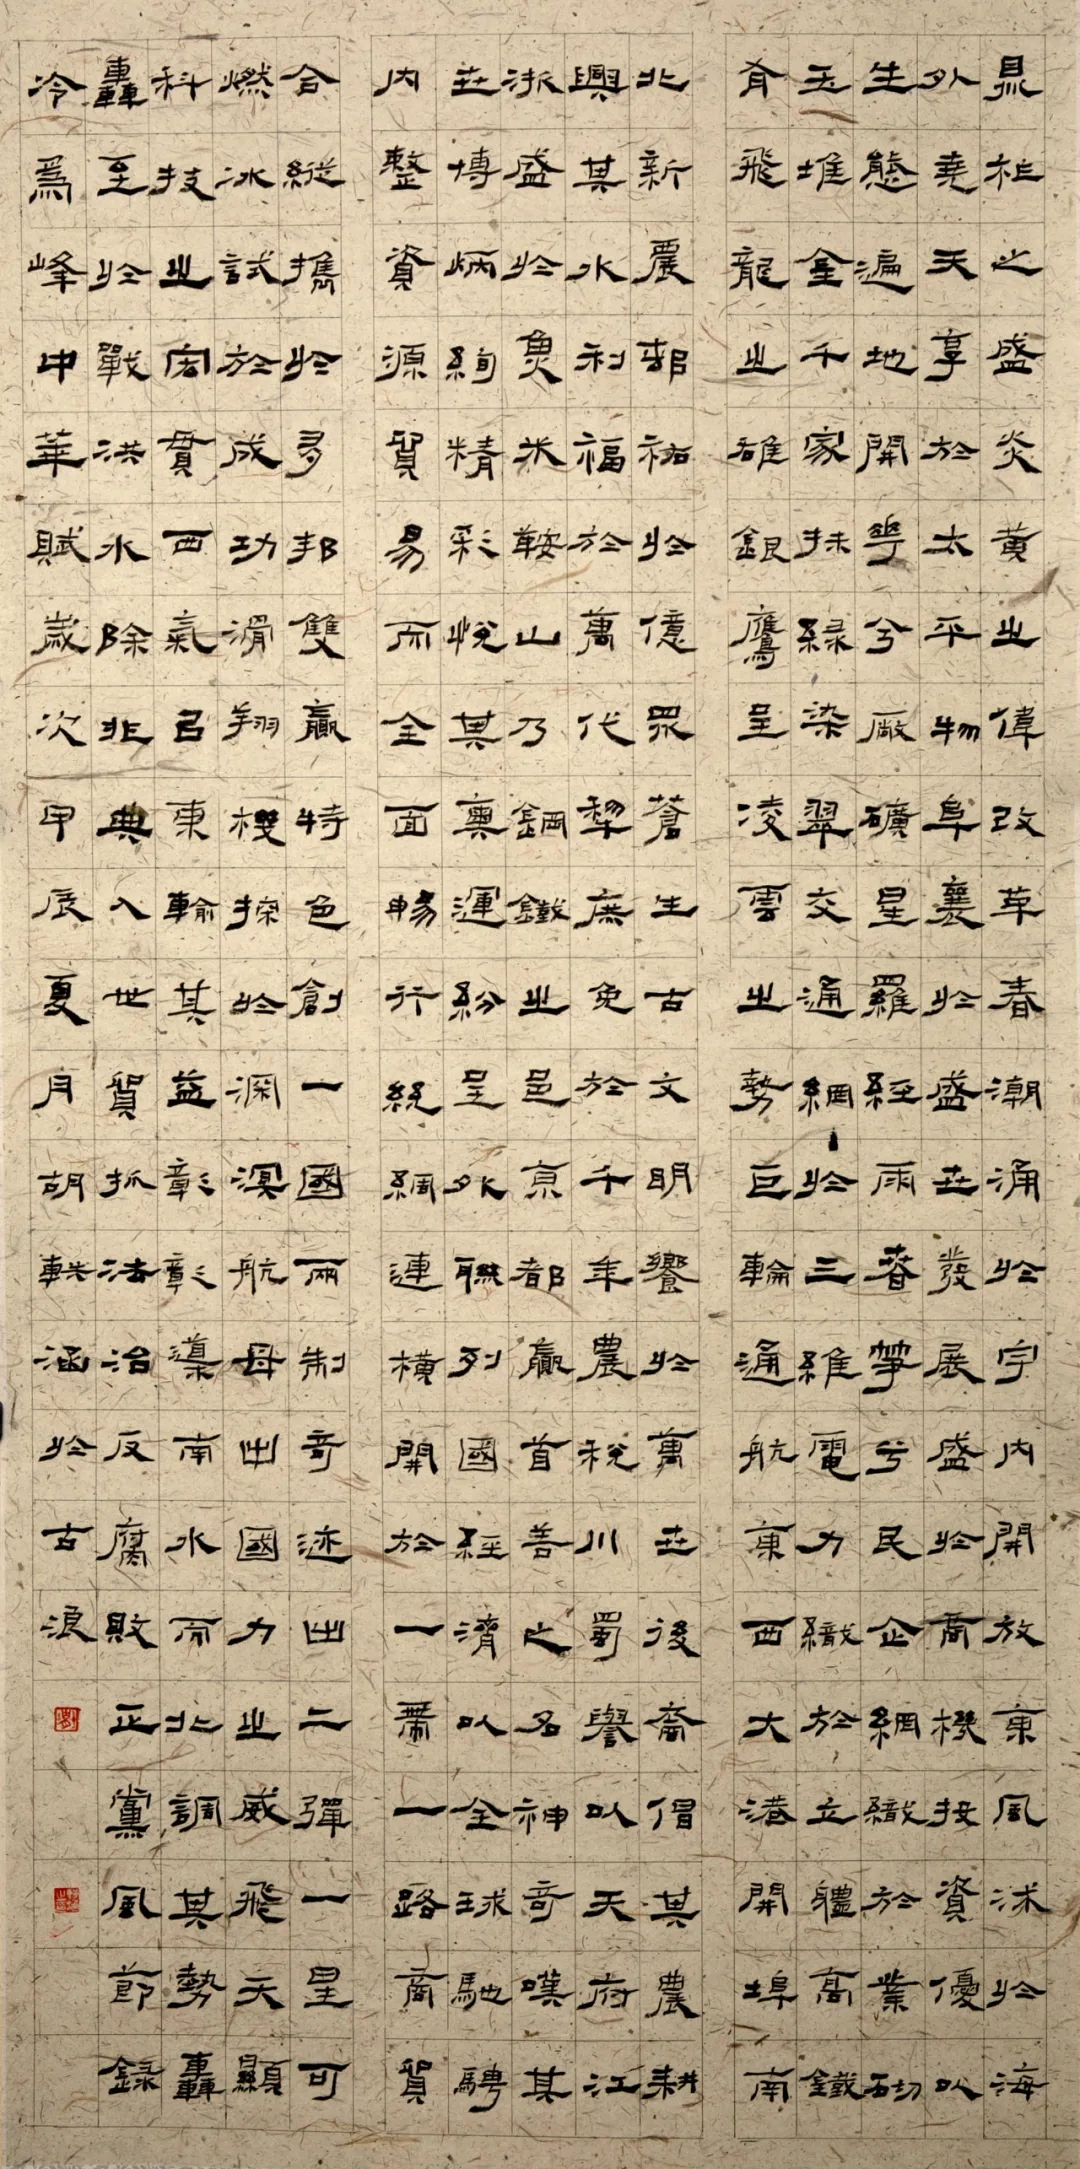 之盛炎黄之偉改革春潮涌於宇内開放東風沐於海
外堯天享於太平物阜襄於盛世發展盛於商機投資優以
生態遍地開花兮廠礦星羅經雨春筍兮民企網織於業砌
玉堆金千家抹緑染翠交通網於三維電力織於立體高鐵
有飛龍之雄銀鷹呈凌雲之勢巨輪通航東西大港開埠南
北新農邨祐於億眾蒼生古文明饗於萬世後裔倡其農耕
興其水利福於萬代犁庶免於千年農税川蜀譽以天府江
浙盛於魚米鞍山乃鋼鐵之邑京都贏首善之名神奇嘆其
世博炳絢精彩悦其奥運紛呈外聯列國經濟以全球馳騁
内整資源貿易而全面暢行絲綢連横開於一帶一路商貿
合縱攜於多邦雙贏特色創一國兩制奇迹出二彈一星可
燃冰試於成功滑翔機探於深溟航母出國力之威飛天顯
科技之宏貫西氣已東輸其益彰彰導南水而北調其勢轟
轟至於戰洪水除非典入世貿抓法治反腐敗正黨風節録
冷為峰中華賦歲次甲辰夏月胡軼涵於古浪